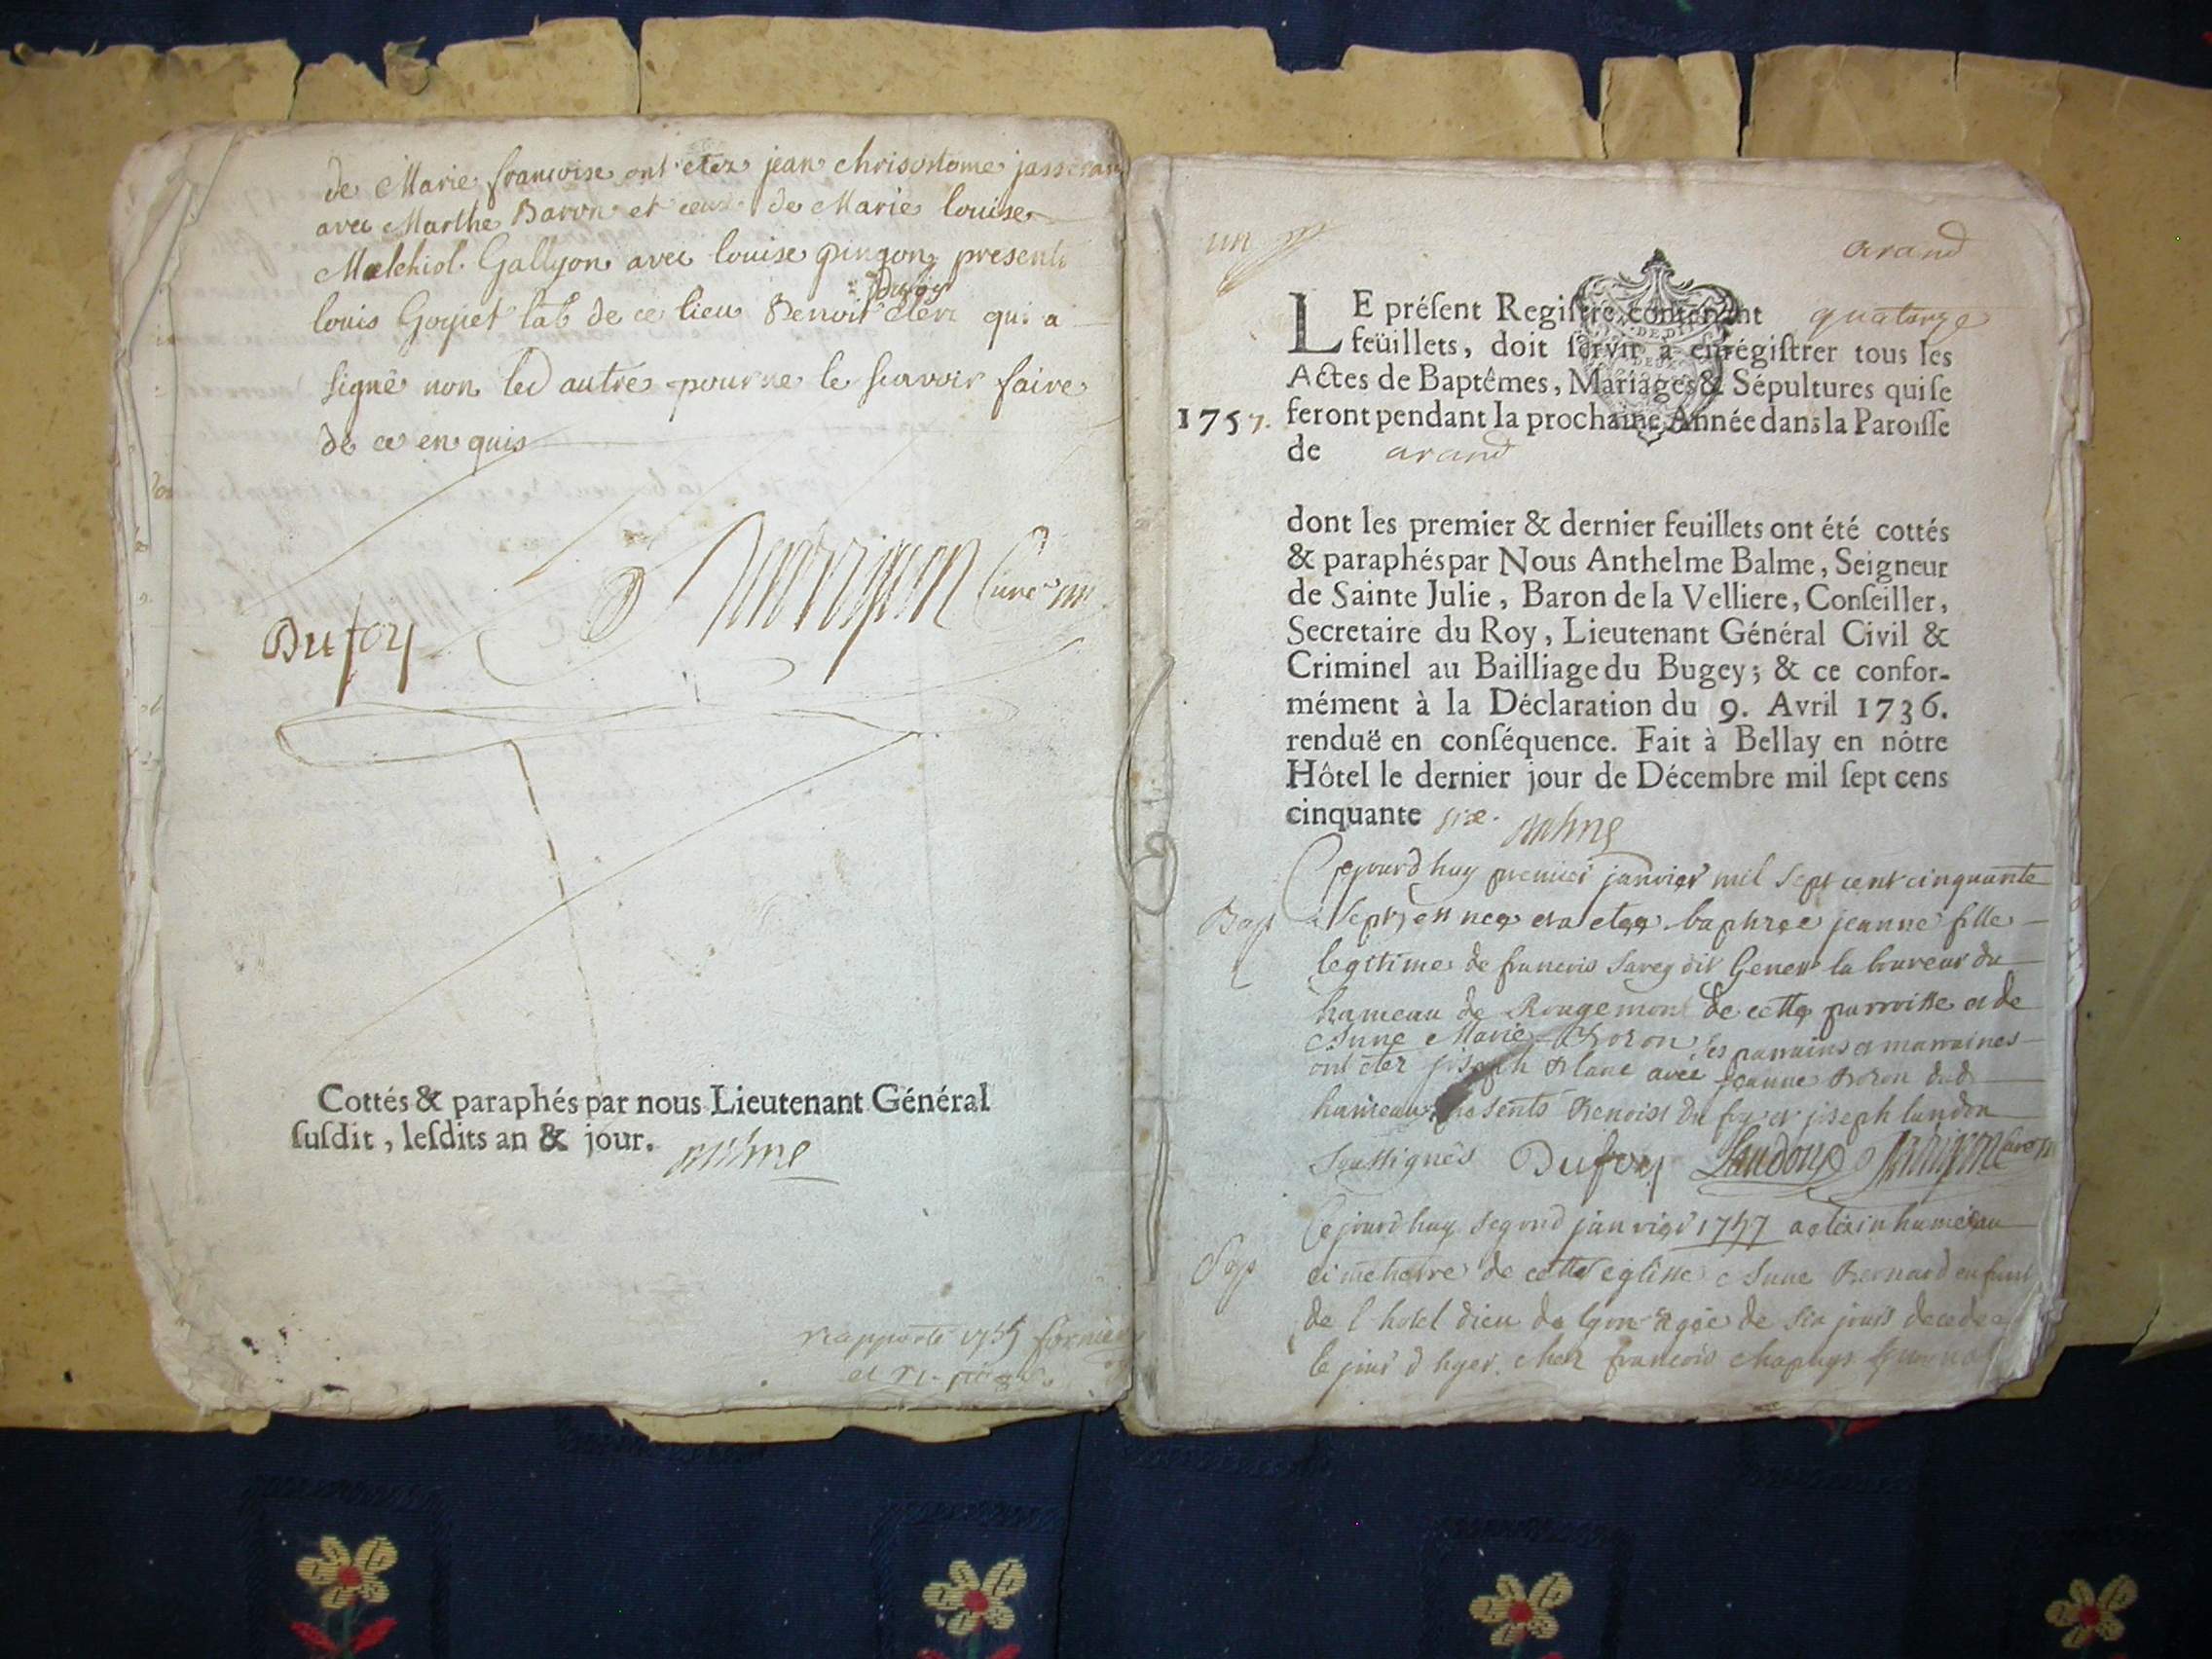 de Marie francoise ont etez jean chrisostome
avec Marthe Baron et ceux de Marie louise
Melchiol Gallyon avec louise pingon present
Dufoy
louis Goyiet lab de ce lieu Benoit clerc qui a
signé non led autres pour ne le scavoir faire
de ce enquis
Dufoy curé
Cottés & paraphés par nous Lieutenant Général
ſuſdit, leſdits an & jour. Balme
rapporté
un arand
LE préſent Regiſtre contenant quatorze
feüillets, doit ſervir à enrégiſtrer tous les
Actes de Baptêmes, Mariages & Sépultures qui ſe
1757. feront pendant la prochaine Année dans la Paroiſſe
de arand
dont les premier & dernier feuillets ont été cottés
& paraphés par Nous Anthelme Balme, Seigneur
de Sainte Julie, Baron de la Velliere, Conſeiller,
Secretaire du Roy, Lieutenant Général Civil &
Criminel au Bailliage du Bugey; & ce confor-
mément à la Déclaration du 9. Avril 1736.
renduë en conſéquence. Fait à Bellay en nôtre
Hôtel le dernier jour de Décembre mil ſept cens
cinquante six. Balme
Cejourdhuy premier janvier mil sept cent cinquante
Bap sept est nee et a etee baptizee jeanne fille
legitime de francois Savey dit Genet laboureur du
hameau de Rougemont de cette parroisse et de
Anne Marie Boron ses parrains et marraines
ont etez joseph Blanc avec jeanne Boron dud
hameau presents Benoist Dufoy et joseph landon
soussignés Dufoy Landoux curé
Cejourdhuy segond janvier 1757 a etéz inhumée au
Sep cimetierre de cette eglisse Anne Bernard enfant
de l hotel dieu de lyon agée de six jours decedee
le jour d hyer chez francois chapuys